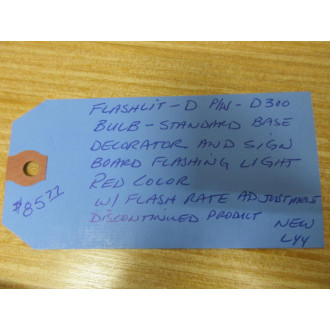 FLASHLIT - D P/N - D300
BULB - STANDARD BASE
DECORATOR AND SIGN
BOARD FLASHING LIGHT
RED COLOR
W/ FLASH RATE ADJUSTABLE
DISCONTINUED PRODUCT NEW
LYY
$85.77